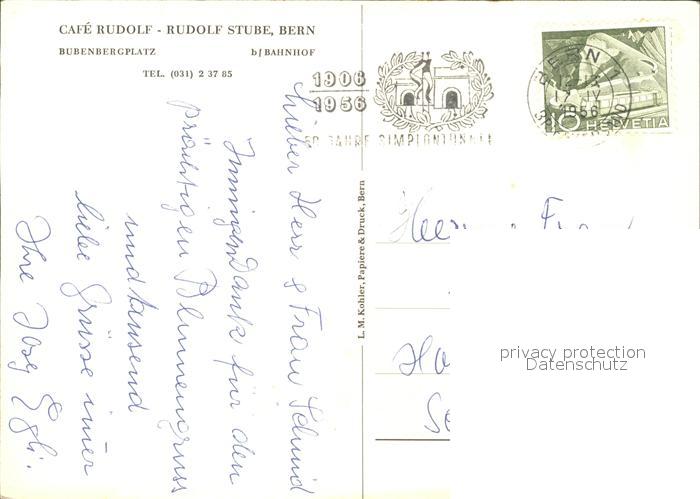 CAFÉ RUDOLF - RUDOLF STUBE, BERN
BUBENBERGPLATZ b/BAHNHOF
TEL. (031) 2 37 85
1906
1956
50 JAHRE SIMPLONTUNNEL
BERN 1
1956
HELVETIA
Lieber Herr & Frau Schmid
Innigen Dank für den
prächtigen Blumengruss
und tausend
liebe Grüsse immer
Ihre Josy Egli.
L. M. Kohler, Papiere & Druck, Bern
privacy protection
Datenschutz